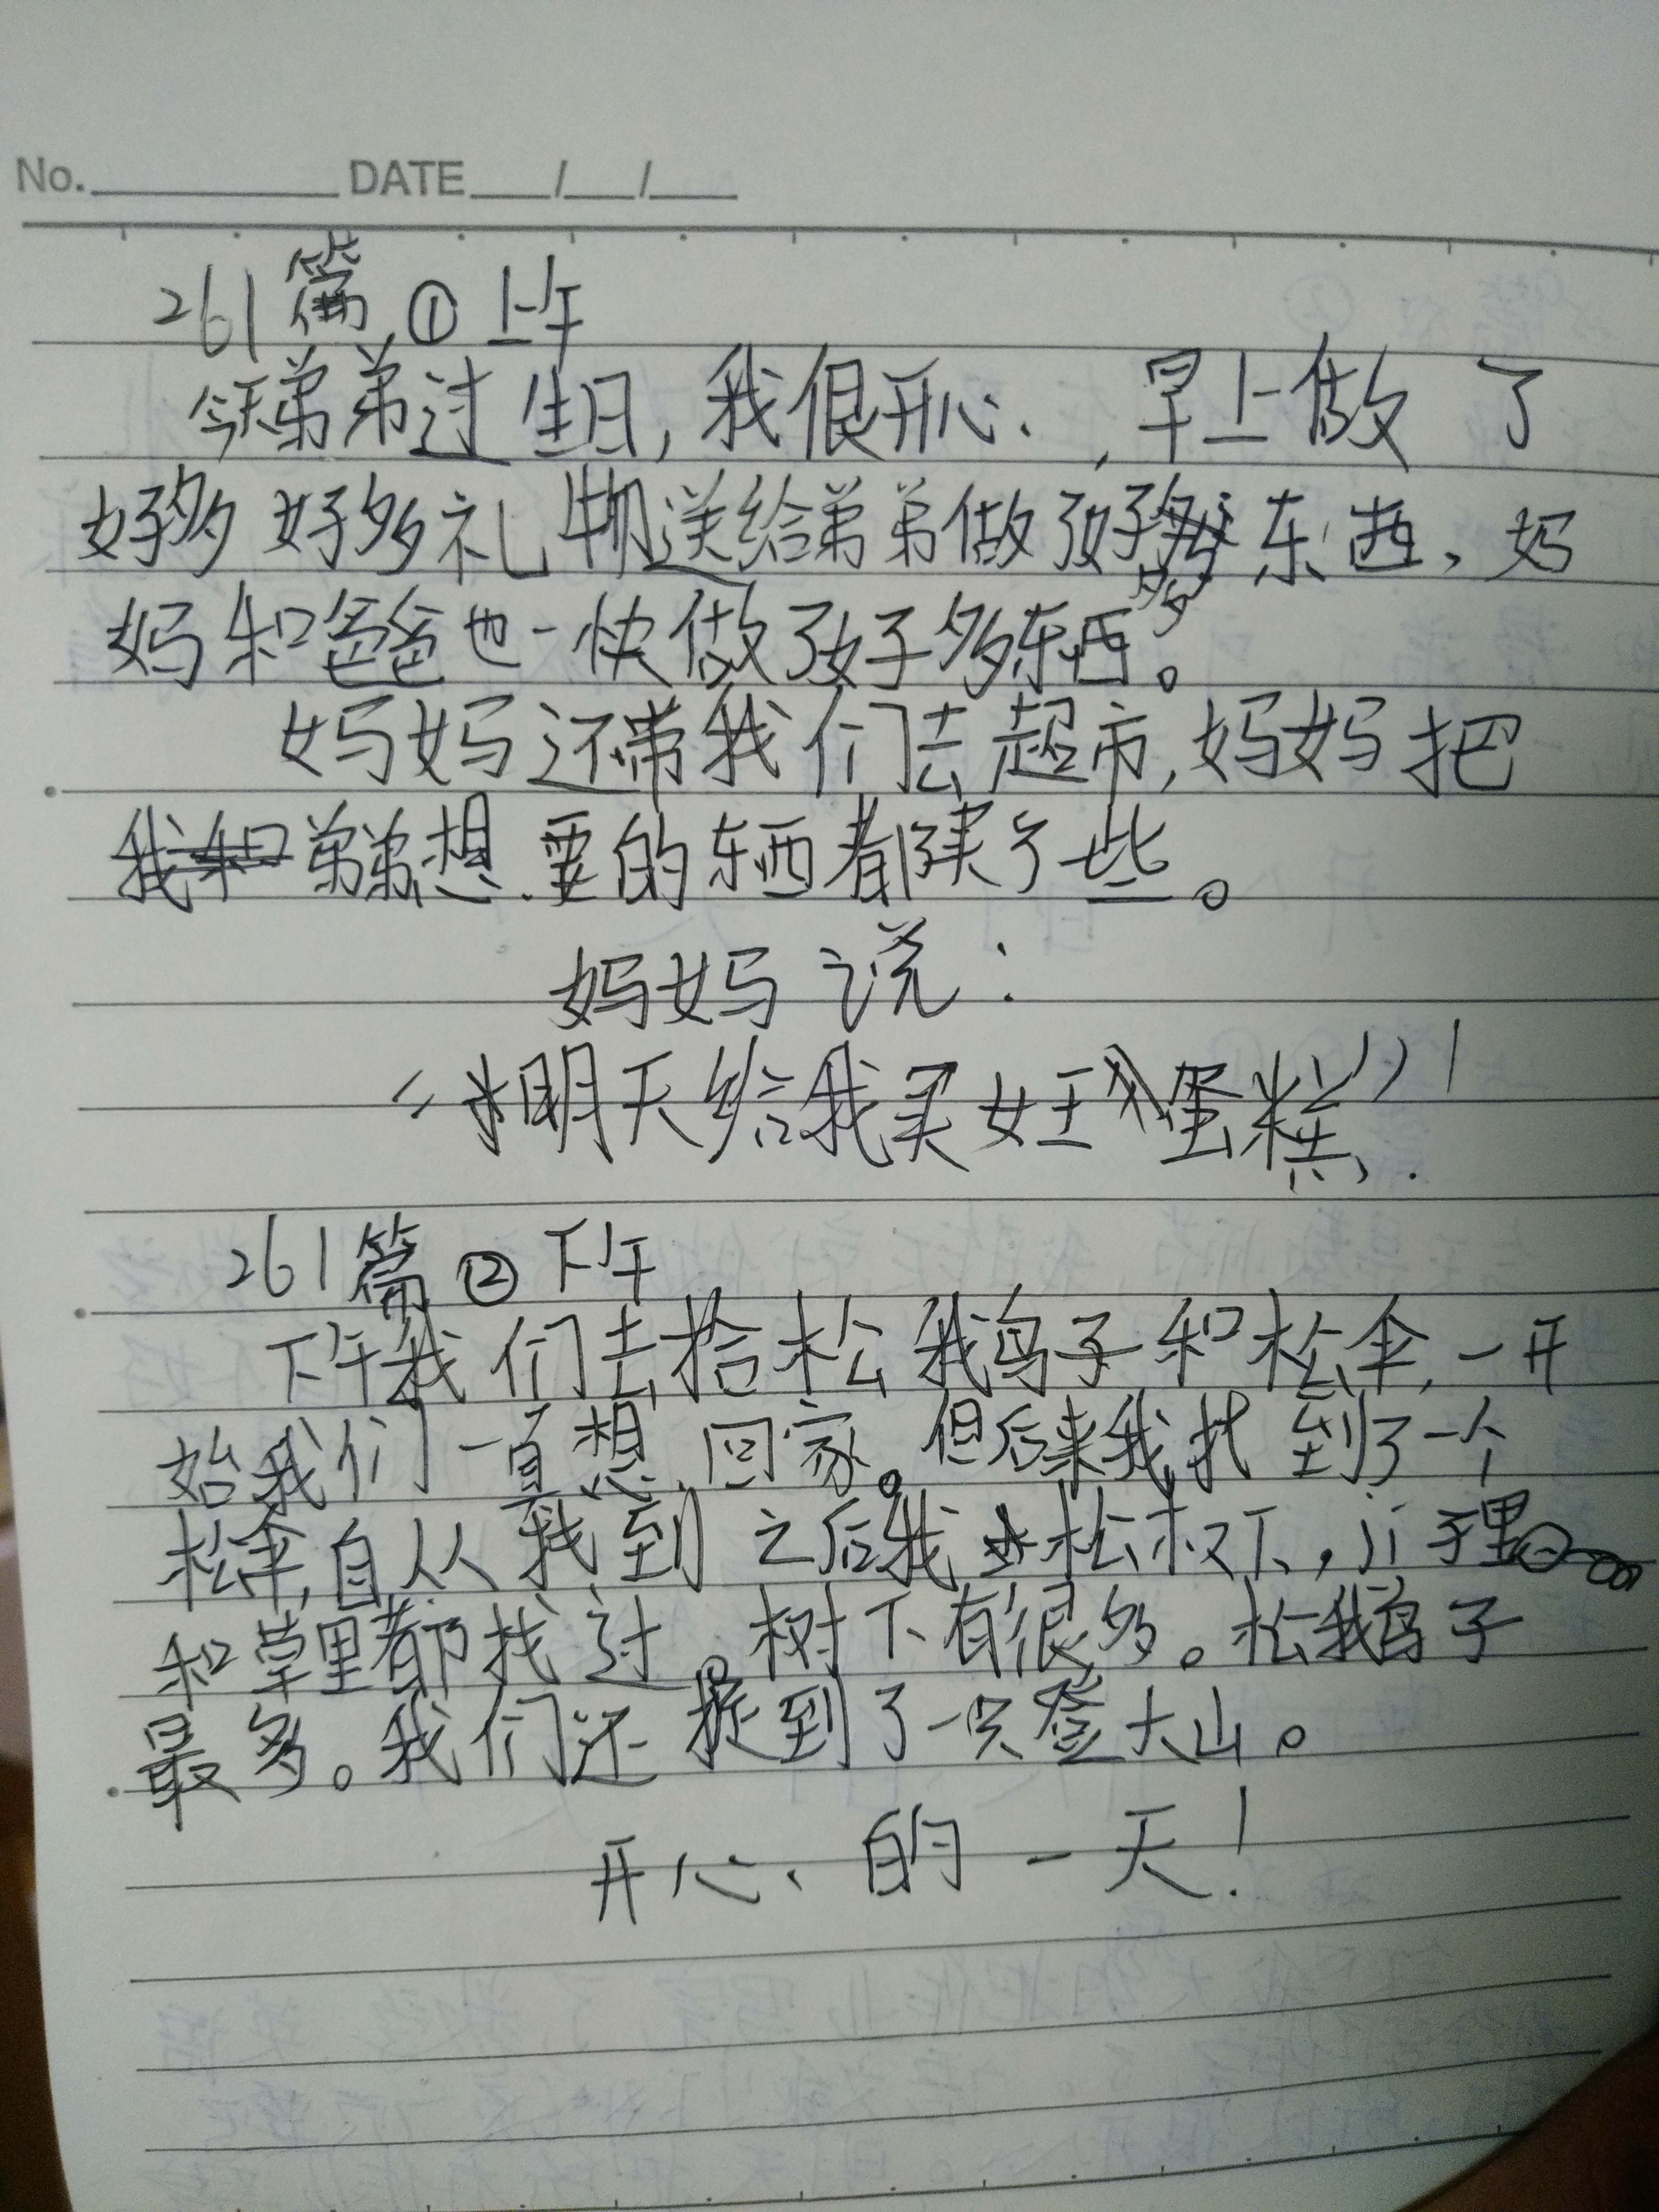 No. DATE / /
261篇①上午
今天弟弟过生日,我很开心、,早上做了
好多好多礼物送给弟弟做了好多东西、妈
妈和爸爸也一快做了好多东西。
妈妈还带我们去超市,妈妈把
我和弟弟想要的东西都买了一些。
妈妈说:
“明天给我买女王蛋糕”!
261篇②下午
下午我们去拾松我鸟子和松伞,一开
始我们一直想回家。但后来我找到了一个
松伞,自从我到之后我去松权下,
和草里都找过。树下有很多。松我鸟子
最多。我们还捉到了一只登大山。
开心的一天!